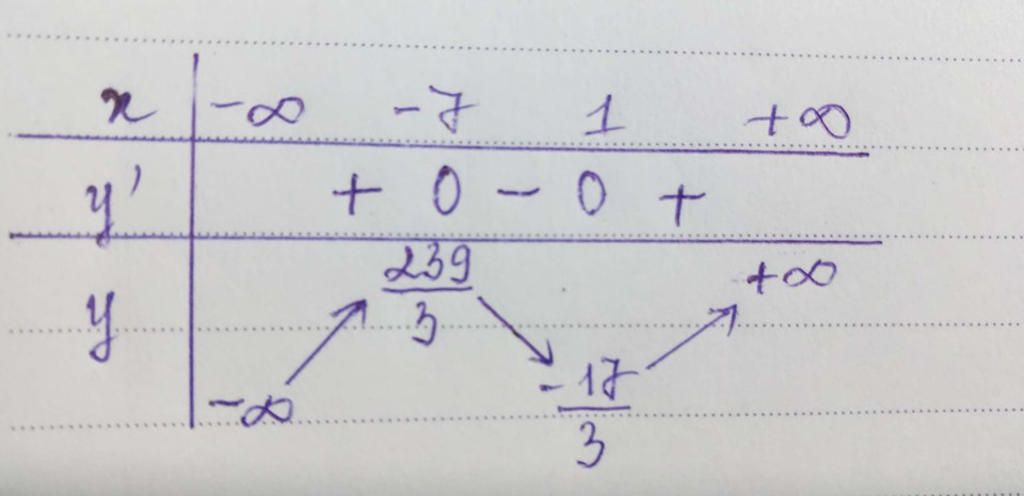 x -∞ -7 1 +∞
y' + 0 - 0 +
y -∞ ↗ 239/3 ↘ -17/3 ↗ +∞